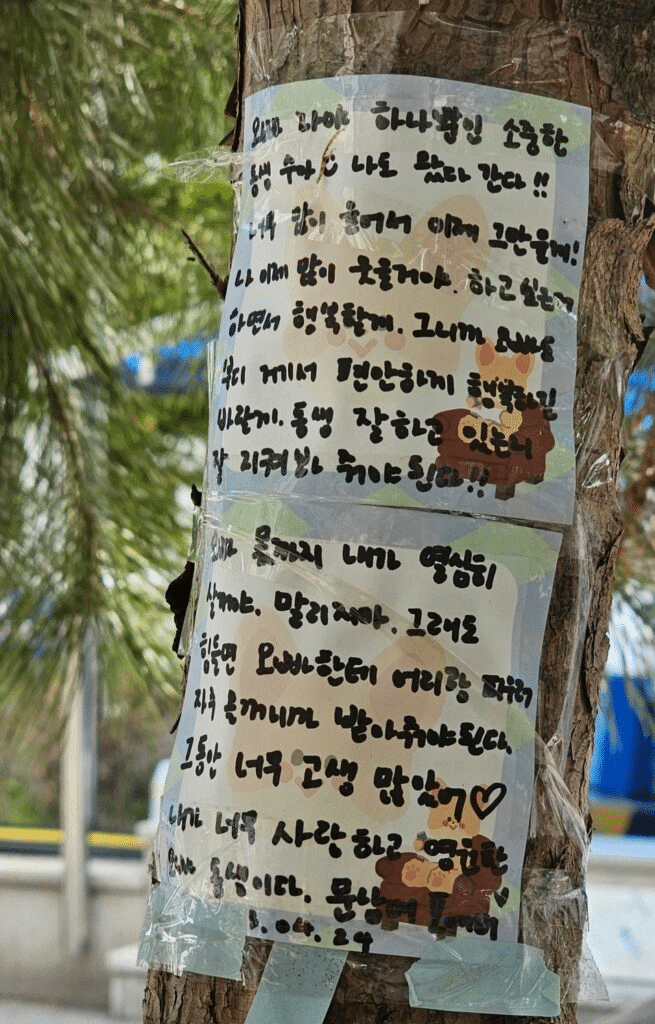 오빠 나야 하나뿐인 소중한
동생 수아 나도 왔다 간다!!
너무 많이 울어서 이제 그만울게!
나 이제 많이 웃을거야. 하고싶은거
하면서 행복할게. 그니까 오빠도
부디 거기서 편안하게 행복하길
바랄게. 동생 잘하고 있는지
잘 지켜봐 줘야된다!!
오빠 몫까지 내가 열심히
살거야. 말리지마. 그래도
힘들면 오빠한테 어리광 피우러
자주 올꺼니까 받아줘야된다.
그동안 너무 고생 많았어♡
내가 너무 사랑하고 영원한
오빠 동생이다.
04.29